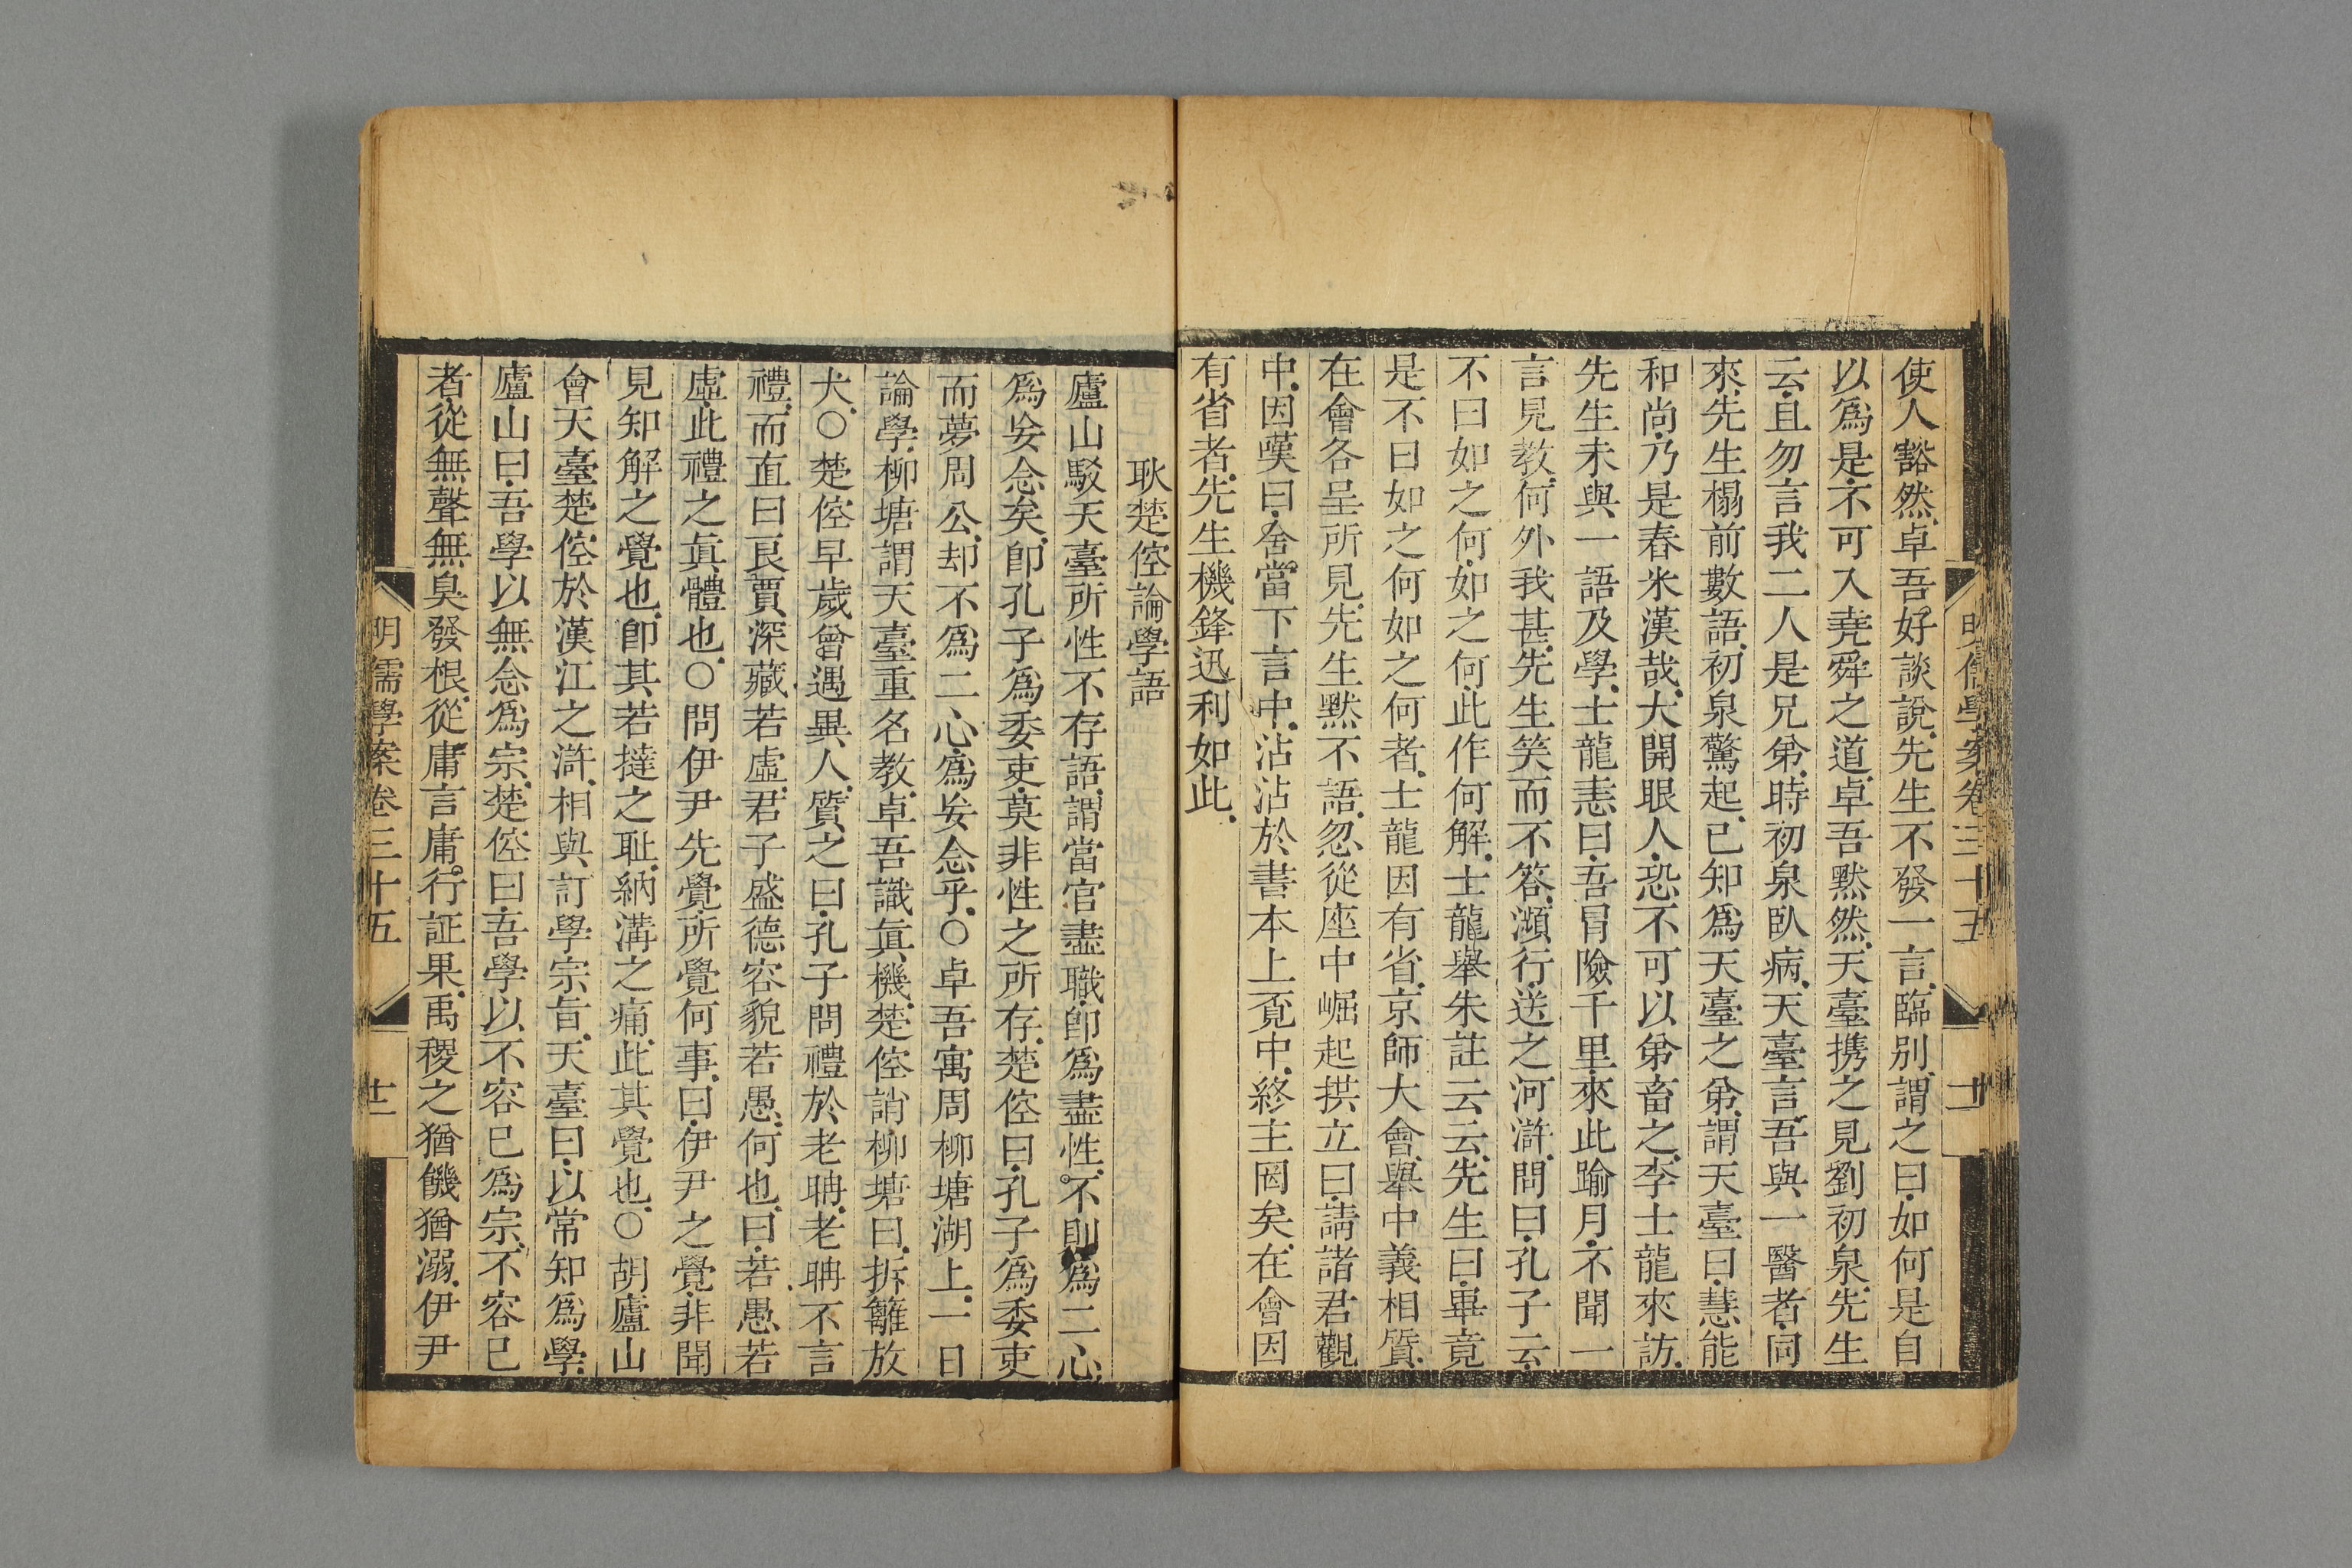 明儒學案卷三十五
使人豁然卓吾好談說先生不發一言臨別謂之曰如何是自
以為是不可入堯舜之道卓吾默然天臺携之見劉初泉先生
云且勿言我二人是兄弟時初泉臥病天臺言吾與一醫者同
來先生榻前數語初泉驚起已知為天臺之弟謂天臺曰慧能
和尚乃是舂米漢哉大開眼人恐不可以弟畜之李士龍來訪
先生未與一語及學士龍恚曰吾冒險千里來此踰月不聞一
言見教何外我甚先生笑而不答瀕行送之河滸問曰孔子云
不曰如之何如之何此作何解士龍舉朱註云云先生曰畢竟
是不曰如之何如之何者士龍因有省京師大會舉中義相質
在會各呈所見先生默不語忽從座中崛起拱立曰請諸君觀
中因嘆曰舍當下言中沾沾於書本上覔中終主罔矣在會因
有省者先生機鋒迅利如此
耿楚倥論學語
廬山駁天臺所性不存語謂當官盡職卽為盡性不則為二心
為妄念矣卽孔子為委吏莫非性之所存楚倥曰孔子為委吏
而夢周公却不為二心為妄念乎○卓吾寓周柳塘湖上一日
論學柳塘謂天臺重名教卓吾識眞機楚倥誚柳塘曰拆籬放
犬○楚倥早歲曾遇異人質之曰孔子問禮於老聃老聃不言
禮而直曰良賈深藏若虛君子盛德容貌若愚何也曰若愚若
虛此禮之眞體也○問伊尹先覺所覺何事曰伊尹之覺非聞
見知解之覺也卽其若撻之耻納溝之痛此其覺也○胡廬山
會天臺楚倥於漢江之滸相與訂學宗旨天臺曰以常知為學
廬山曰吾學以無念為宗楚倥曰吾學以不容已為宗不容已
者從無聲無臭發根從庸言庸行証果禹稷之猶饑猶溺伊尹
明儒學案卷三十五